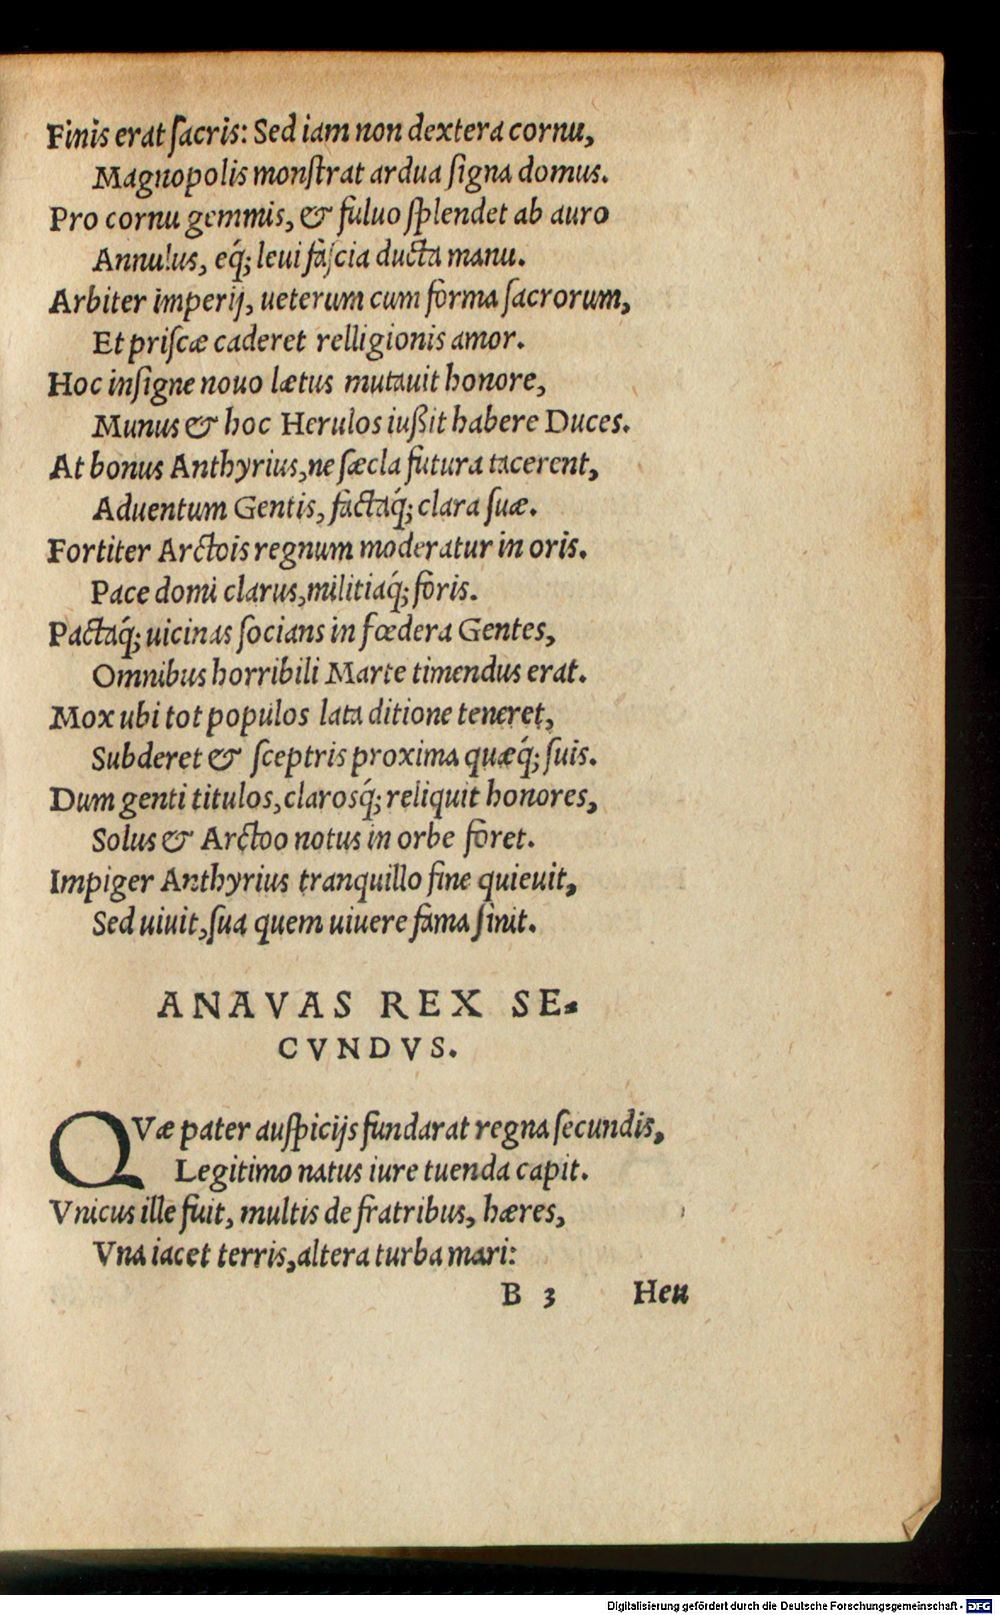 Finis erat ſacris: Sed iam non dextera cornu,
Magnopolis monſtrat ardua ſigna domus.
Pro cornu gemmis, & fuluo ſplendet ab auro
Annulus, eq́; leui faſcia ducta manu.
Arbiter imperij, ueterum cum forma ſacrorum,
Et priſcæ caderet relligionis amor.
Hoc inſigne nouo lætus mutauit honore,
Munus & hoc Herulos iußit habere Duces.
At bonus Anthyrius, ne ſæcla futura tacerent,
Aduentum Gentis, factaq́; clara ſuæ.
Fortiter Arctois regnum moderatur in oris.
Pace domi clarus, militiaq́; foris.
Pactaq́; uicinas ſocians in fœdera Gentes,
Omnibus horribili Marte timendus erat.
Mox ubi tot populos lata ditione teneret,
Subderet & ſceptris proxima quæq́; ſuis.
Dum genti titulos, clarosq́; reliquit honores,
Solus & Arctoo notus in orbe foret.
Impiger Anthyrius tranquillo fine quieuit,
Sed uiuit, ſua quem uiuere fama ſinit.
ANAVAS REX SE-
CVNDVS.
QVæ pater auſpicijs fundarat regna ſecundis,
Legitimo natus iure tuenda capit.
Vnicus ille fuit, multis de fratribus, hæres,
Vna iacet terris, altera turba mari:
B 3 Heu
Digitalisierung gefördert durch die Deutsche Forschungsgemeinschaft - DFG